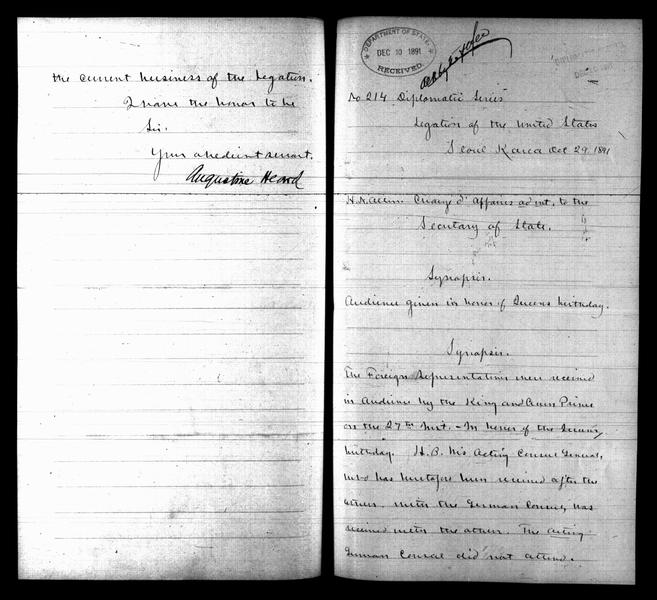 the current business of the Legation.
I have the honor to be
Sir.
Your obedient servant.
Augustine Heard
DEPARTMENT OF STATE
DEC 10 1891
RECEIVED
No 214 Diplomatic Series
Legation of the United States
Seoul Korea Oct 29 1891
H. N. Allen. Chargé d'Affaires ad int. to the
Secretary of State.
Synopsis.
Audience given in honor of Queens birthday.
Synopsis.
The Foreign Representatives were received
in audience by the King and Crown Prince
on the 27th inst. - In honor of the Queens
birthday. H. B. M's Acting Consul General,
who has heretofore been received after the
others with the German Consul, was
received with the others. The acting
German Consul did not attend.